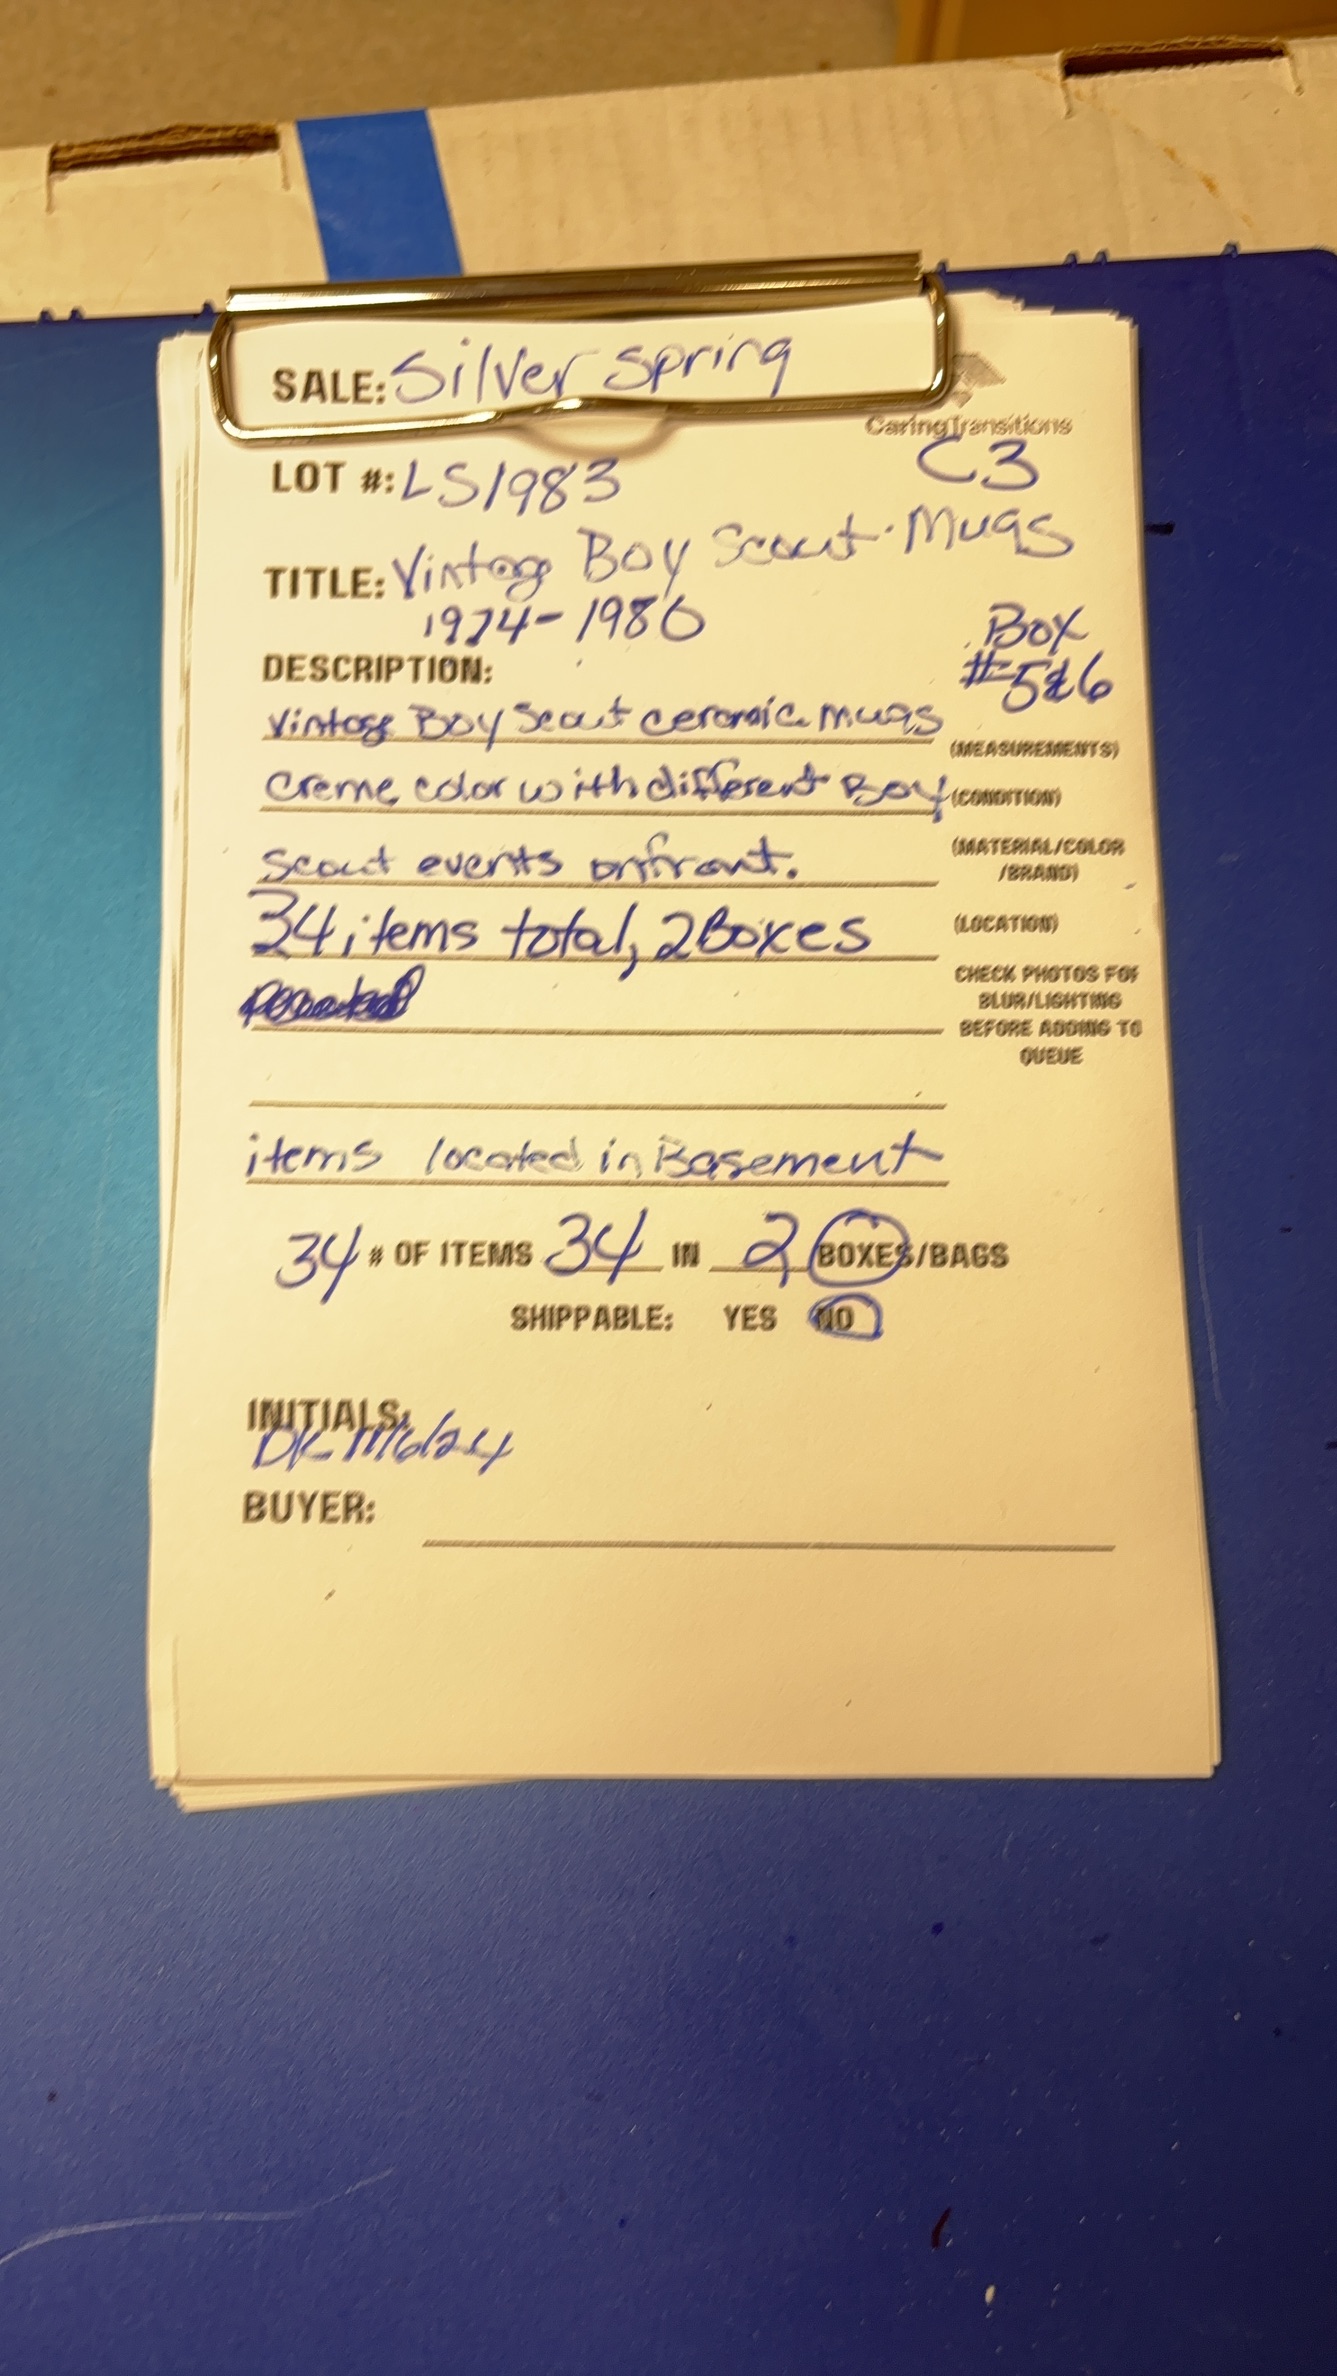 SALE: Silver Spring
CaringTransitions
LOT #: LS1983
C3
TITLE: Vintage Boy Scout Mugs
1974-1980
Box
#5&6
DESCRIPTION:
Vintage Boy Scout ceramic mugs
(MEASUREMENTS)
creme color with different Boy
(CONDITION)
scout events onfront.
(MATERIAL/COLOR
/BRAND)
34 items total, 2 Boxes
(LOCATION)
CHECK PHOTOS FOR
BLUR/LIGHTING
BEFORE ADDING TO
QUEUE
items located in Basement
34 # OF ITEMS 34 IN 2 BOXES/BAGS
SHIPPABLE: YES NO
INITIALS:
DK 11/6/24
BUYER: